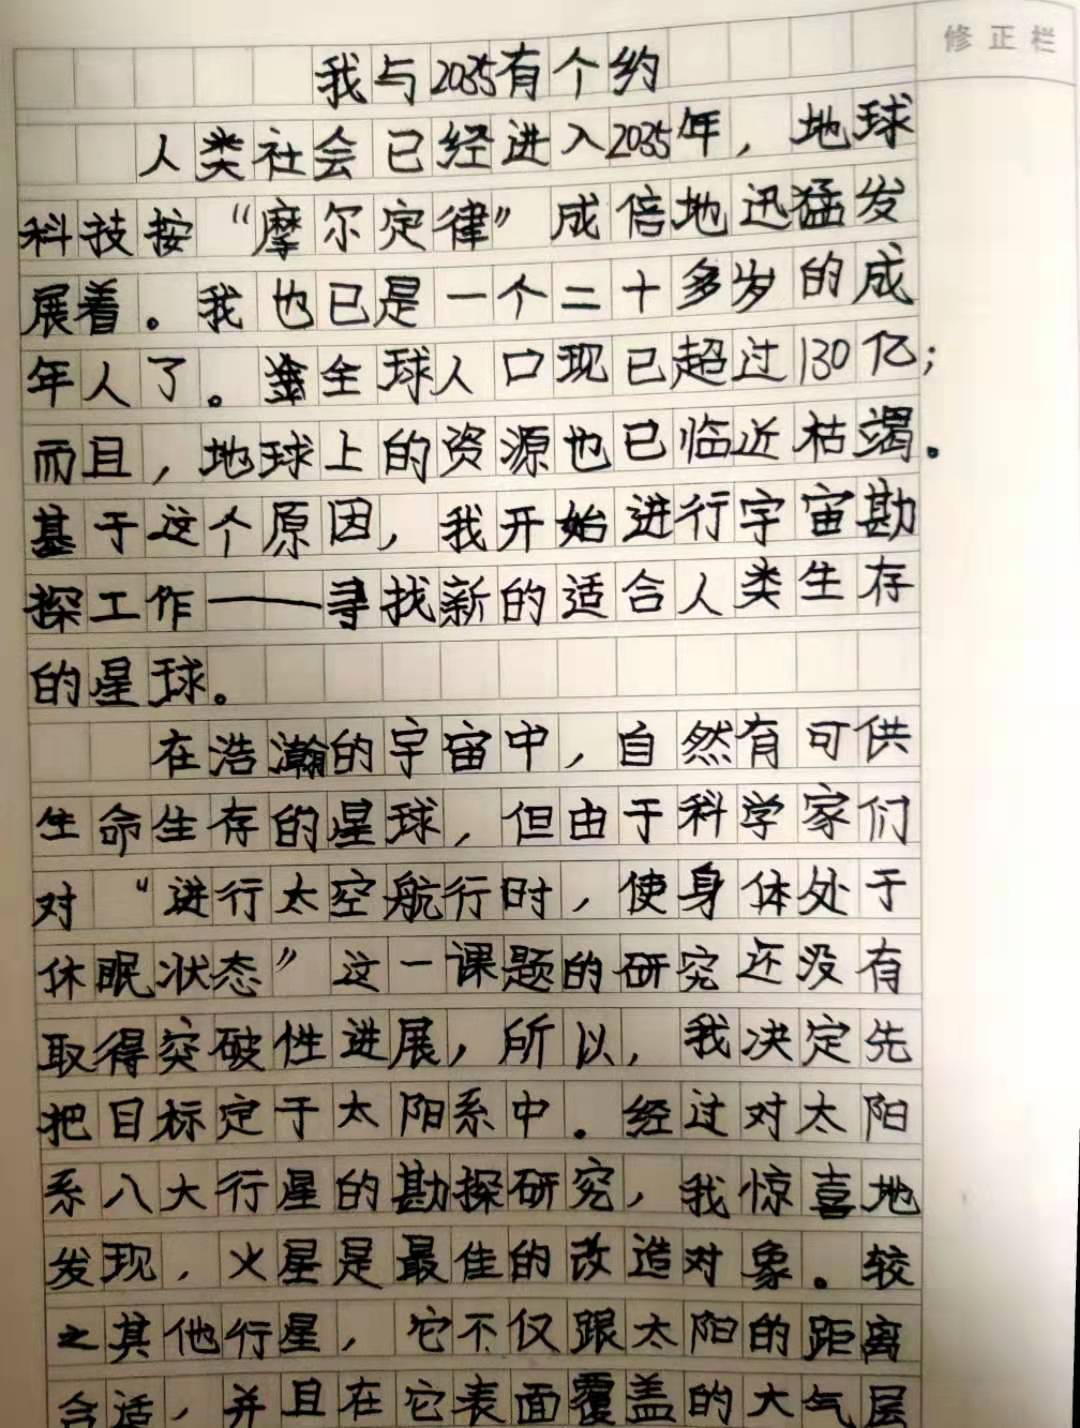 修正栏
我与2035有个约
人类社会已经进入2035年，地球
科技按“摩尔定律”成倍地迅猛发
展着。我也已是一个二十多岁的成
年人了。全球人口现已超过130亿；
而且，地球上的资源也已临近枯竭。
基于这个原因，我开始进行宇宙勘
探工作——寻找新的适合人类生存
的星球。
在浩瀚的宇宙中，自然有可供
生命生存的星球，但由于科学家们
对“进行太空航行时，使身体处于
休眠状态”这一课题的研究还没有
取得突破性进展，所以，我决定先
把目标定于太阳系中。经过对太阳
系八大行星的勘探研究，我惊喜地
发现，火星是最佳的改造对象。较
之其他行星，它不仅跟太阳的距离
合适，并且在它表面覆盖的大气层